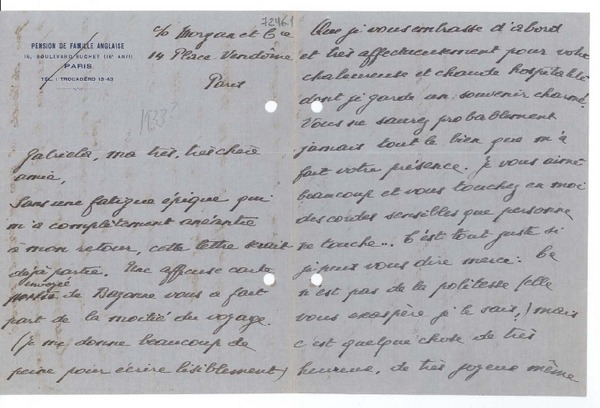 PENSION DE FAMILLE ANGLAISE
15, BOULEVARD SUCHET (16e ARRt)
PARIS.
TÉL : TROCADÉRO 13-43
72461
c/o Morgan et Cie
14 Place Vendôme
Paris
1933?
Gabriela, ma très, très chère
amie,
Sans une fatigue épique qui
m'a complètement anéantie
à mon retour, cette lettre serait
déjà partie. Une affreuse carte
envoyée
de Bayonne vous a fait
part de la moitié du voyage.
(je me donne beaucoup de
peine pour écrire lisiblement)
Que je vous embrasse d'abord
et très affectueusement pour votre
chaleureuse et chaude hospitalité
dont je garde un souvenir charmé.
Vous ne saurez probablement
jamais tout le bien que m'a
fait votre présence. Je vous aime
beaucoup et vous touchez en moi
des cordes sensibles que personne
ne touche... C'est tout juste si
je peux vous dire merci. Ce
n'est pas de la politesse (elle
vous exaspère je le sais,) mais
c'est quelque chose de très
heureux, de très joyeux même